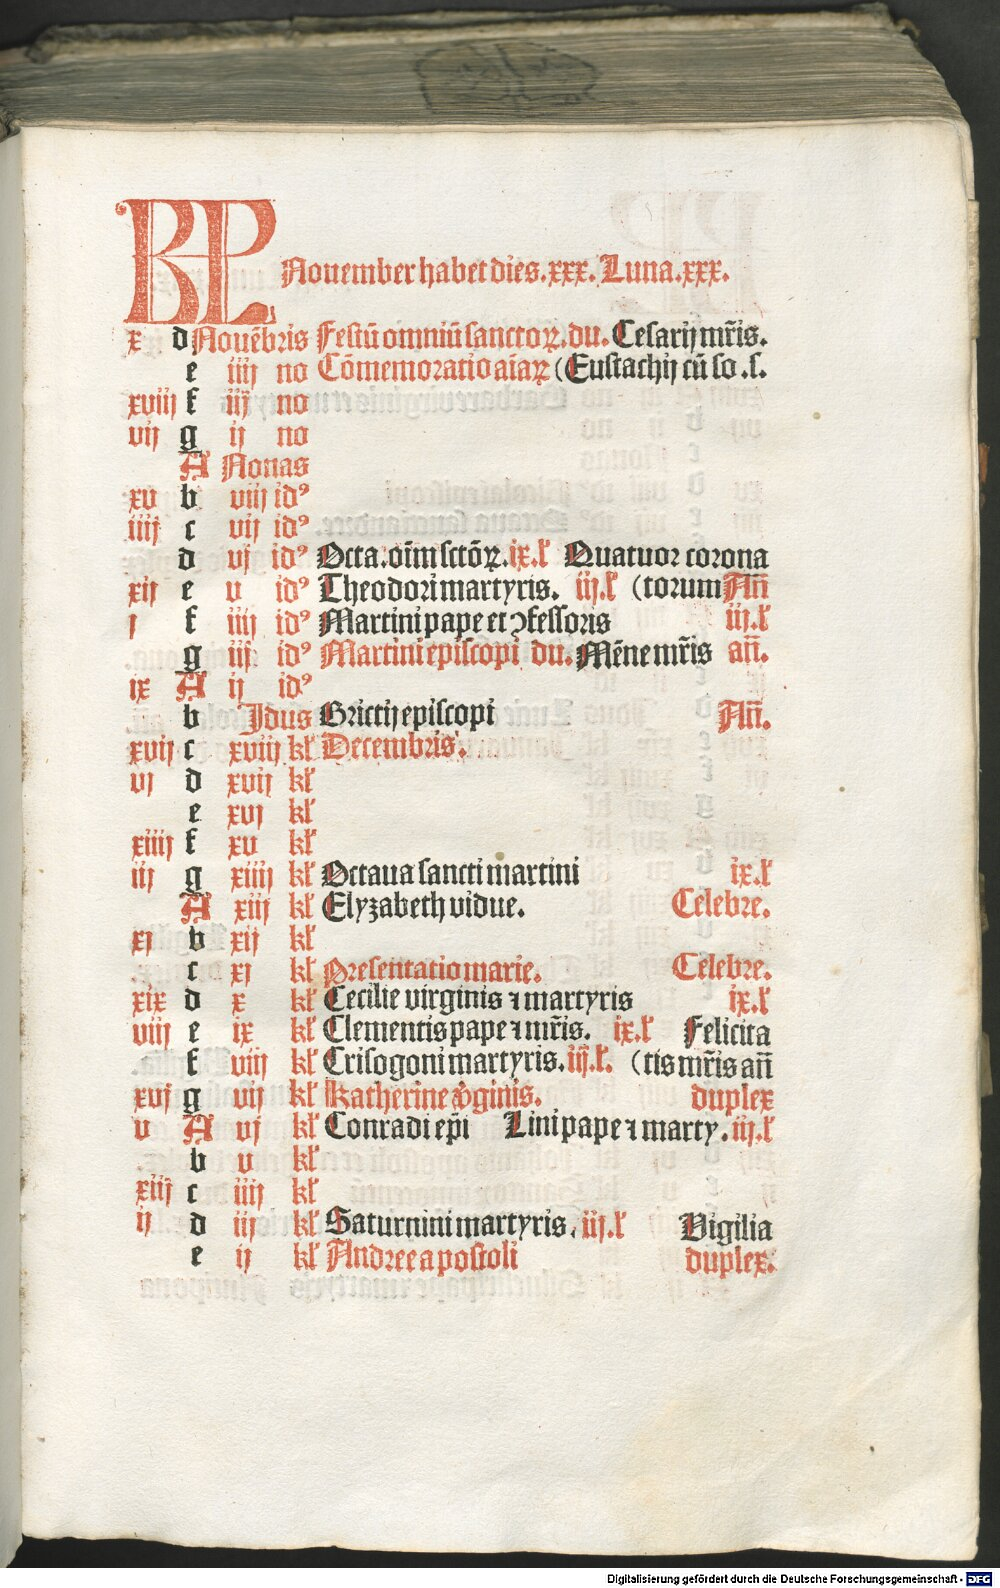 KL Nouember habet dies.xxx. Luna.xxx.
x d Nouēbris Festū omniū sanctoꝝ. du. Cesarij mr̃is.
e iiij no Cōmemoratio aīaꝝ (Eustachij cū so .s.
xviij f iij no
vij g ij no
A Nonas
xv b viij idꝰ
iiij c vij idꝰ
d vj idꝰ Octa. oīm sctōꝝ. ix.lꝭ Quatuor corona
xij e v idꝰ Theodori martyris. iij.lꝭ (torum Añ
j f iiij idꝰ Martini pape et ꝯfessoris iij.lꝭ
g iij idꝰ Martini episcopi du. Mēne mr̃is añ.
ix A ij idꝰ
b Jdus Brictij episcopi Añ.
xvij c xviij klꝭ Decembris.
vj d xvij klꝭ
e xvj klꝭ
xiiij f xv klꝭ
iij g xiiij klꝭ Octaua sancti martini ix.lꝭ
A xiij klꝭ Elyzabeth vidue. Celebre.
xj b xij klꝭ
c xj klꝭ Presentatio marie. Celebre.
xix d x klꝭ Cecilie virginis ⁊ martyris ix.lꝭ
viij e ix klꝭ Clementis pape ⁊ mr̃is. ix.lꝭ Felicita
f viij klꝭ Crisogoni martyris. iij.lꝭ. (tis mr̃is añ
xvj g vij klꝭ Katherine v̾ginis. duplex
v A vj klꝭ Conradi ep̄i Lini pape ⁊ marty. iij.lꝭ
b v klꝭ
xiij c iiij klꝭ
ij d iij klꝭ Saturnini martyris. iij.lꝭ Vigilia
e ij klꝭ Andree apostoli duplex.
Digitalisierung gefördert durch die Deutsche Forschungsgemeinschaft - DFG